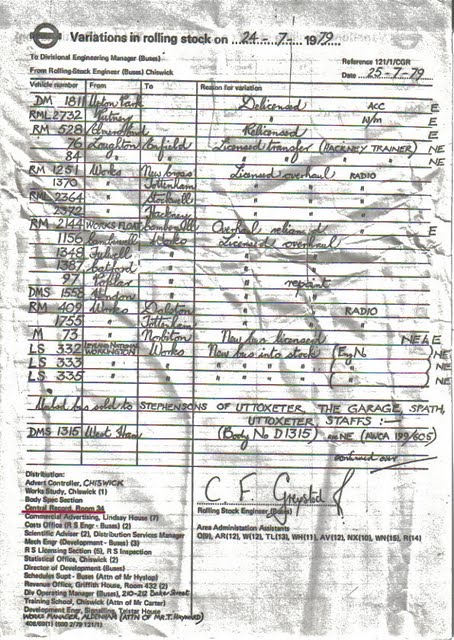 Variations in rolling stock on 24-7-1979
To Divisional Engineering Manager (Buses)
Reference 121/1/CGR
From Rolling-Stock Engineer (Buses) Chiswick
Date 25-7-79
Vehicle number From To Reason for variation
DM 1811 Upton Park Delicensed ACC E
RML 2732 Putney " N/m E
RM 528 Relicensed E
76 Loughton Enfield Licensed transfer (HACKNEY TRAINER) NE
84 " " " " " NE
RM 1251 Works New Cross Licensed overhaul RADIO
1370 " Tottenham " "
RML 2364 " Stockwell " "
2372 " Hackney " "
RM 2144 WORKS FLOAT Overhaul E
1156 Camberwell Works Licensed overhaul
1348 Fulwell " " "
1387 Catford " " "
97 Poplar " " repaint
DMS 1558 Hendon " " "
RM 409 Works Dalston " " RADIO
1755 " Tottenham " " "
M 73 " Norbiton New bus licensed NE & E
LS 332 LEYLAND NATIONAL WORKINGTON Works New bus into stock (Eng No ) NE
LS 333 " " " " " " ( " ) NE
LS 335 " " " " " " ( " ) NE
bus sold to STEPHENSONS OF UTTOXETER, THE GARAGE, SPATH,
UTTOXETER, STAFFS :—
DMS 1315 West Ham (Body No D1315) NE (NWCA 199/605)
continued over
Distribution:
Advert Controller, CHISWICK
Works Study, Chiswick (1)
Body Spec Section
Central Record, Room 34
Commercial Advertising, Lindsay House (7)
Costs Office (R S Engr - Buses) (2)
Scientific Adviser (2), Distribution Services Manager
Mech Engr (Development - Buses) (3)
R S Licensing Section (5), R S Inspection
Statistical Office, Chiswick (2)
Director of Development (Buses)
Schedules Supt - Buses (Attn of Mr Hyslop)
Revenue Office, Griffith House, Room 432 (2)
Div Operating Manager (Buses), 210-212 Baker Street
Training School, Chiswick (Attn of Mr Carter)
Development Engr, Signalling, Telstar House
WORKS MANAGER, ALDENHAM (ATTN OF MR. T. HAYWARD)
Rolling Stock Engineer (Buses)
Area Administation Assistants
O(9), AR(12), W(12), TL(13), WH(11), AV(12), NX(10), WN(15), R(14)